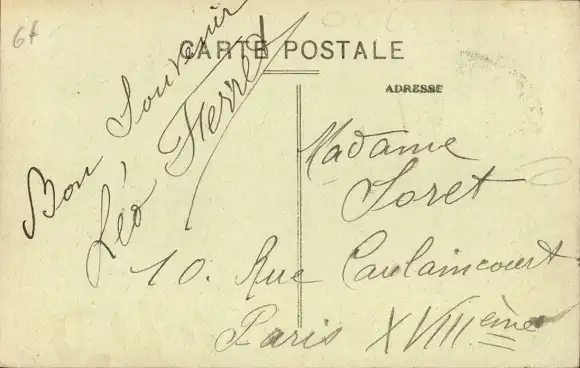 6f
CARTE POSTALE
ADRESSE
Bon Souvenir
Léo Fferréol
Madame
Loret
10. Rue Caulaincourt
Paris XVIIIème